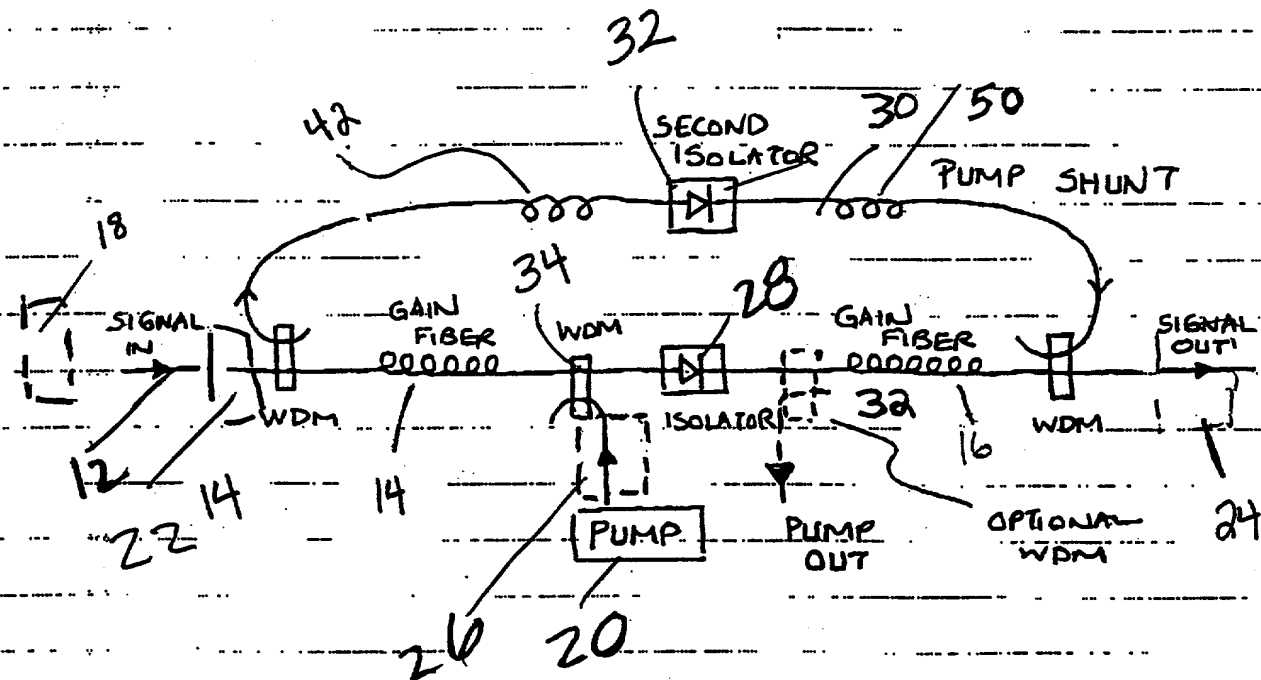 32
42
30
50
SECOND
ISOLATOR
PUMP SHUNT
18
34
28
SIGNAL
IN
GAIN
FIBER
WDM
GAIN
FIBER
SIGNAL
OUT
WDM
ISOLATOR
32
WDM
12
22
14
14
16
24
PUMP
PUMP
OUT
OPTIONAL
WDM
26
20